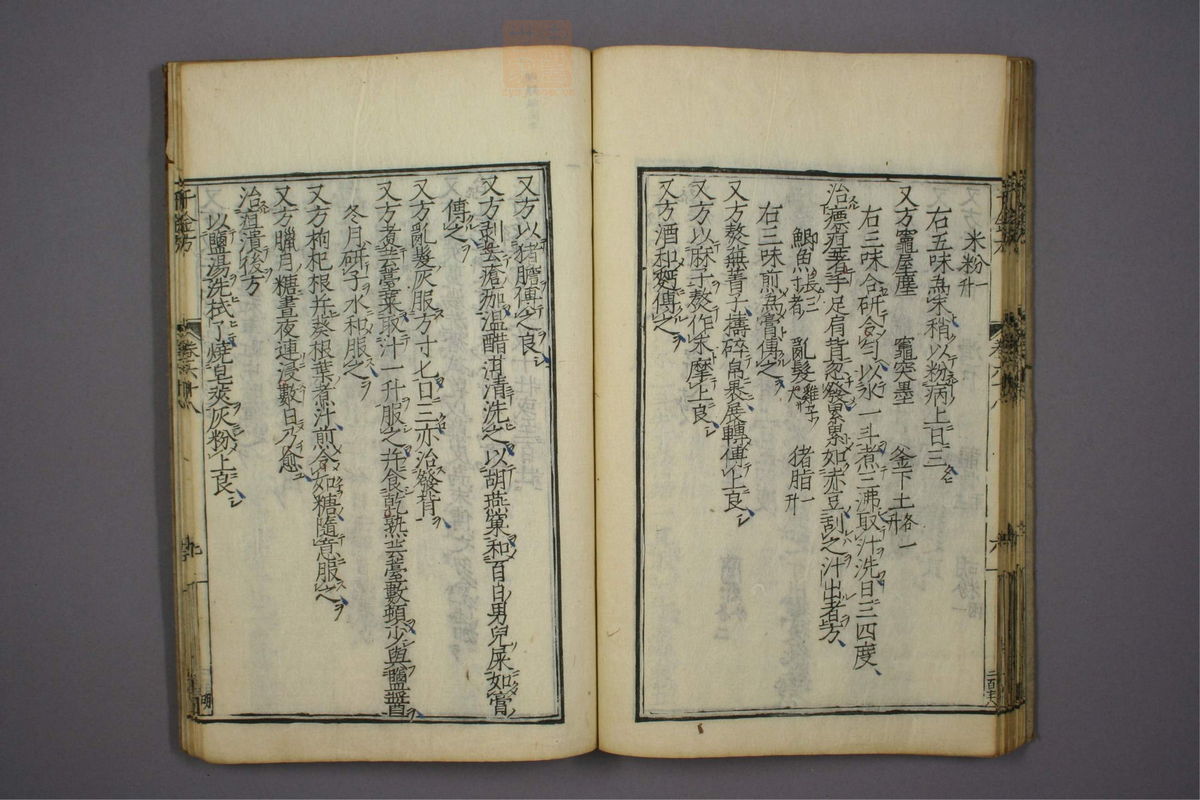 米粉一升
右五味為末稍以粉病上日三
又方竈屋塵 竈突墨 釜下土各一升
右三味合研令勻以水一斗煮三沸取汁洗日三四度
治瘭疽著手足肩背忽發累累如赤豆剝之汁出者方
鯽魚長三寸者 亂髮雞子大 猪脂一升
右三味煎為膏傅之
又方熬蕪菁子擣碎帛裹展轉傅上良
又方以麻子熬作末摩上良
又方酒和麪傅之
又方以猪膽傅之良
又方剝去瘡痂溫醋泔清洗之以胡燕窠和百日男兒屎如膏
傅之
又方亂髮灰服方寸匕日三亦治發背
又方煮芸薹葉取汁一升服之并食乾熟芸薹數頓少與鹽醬
冬月研子水和服之
又方枸杞根并葵根葉煮汁煎令如糖隨意服之
又方臘月糖晝夜連浸數日乃愈
治疽潰後方
以鹽湯洗拭了燒皂莢灰粉上良
千金方
明